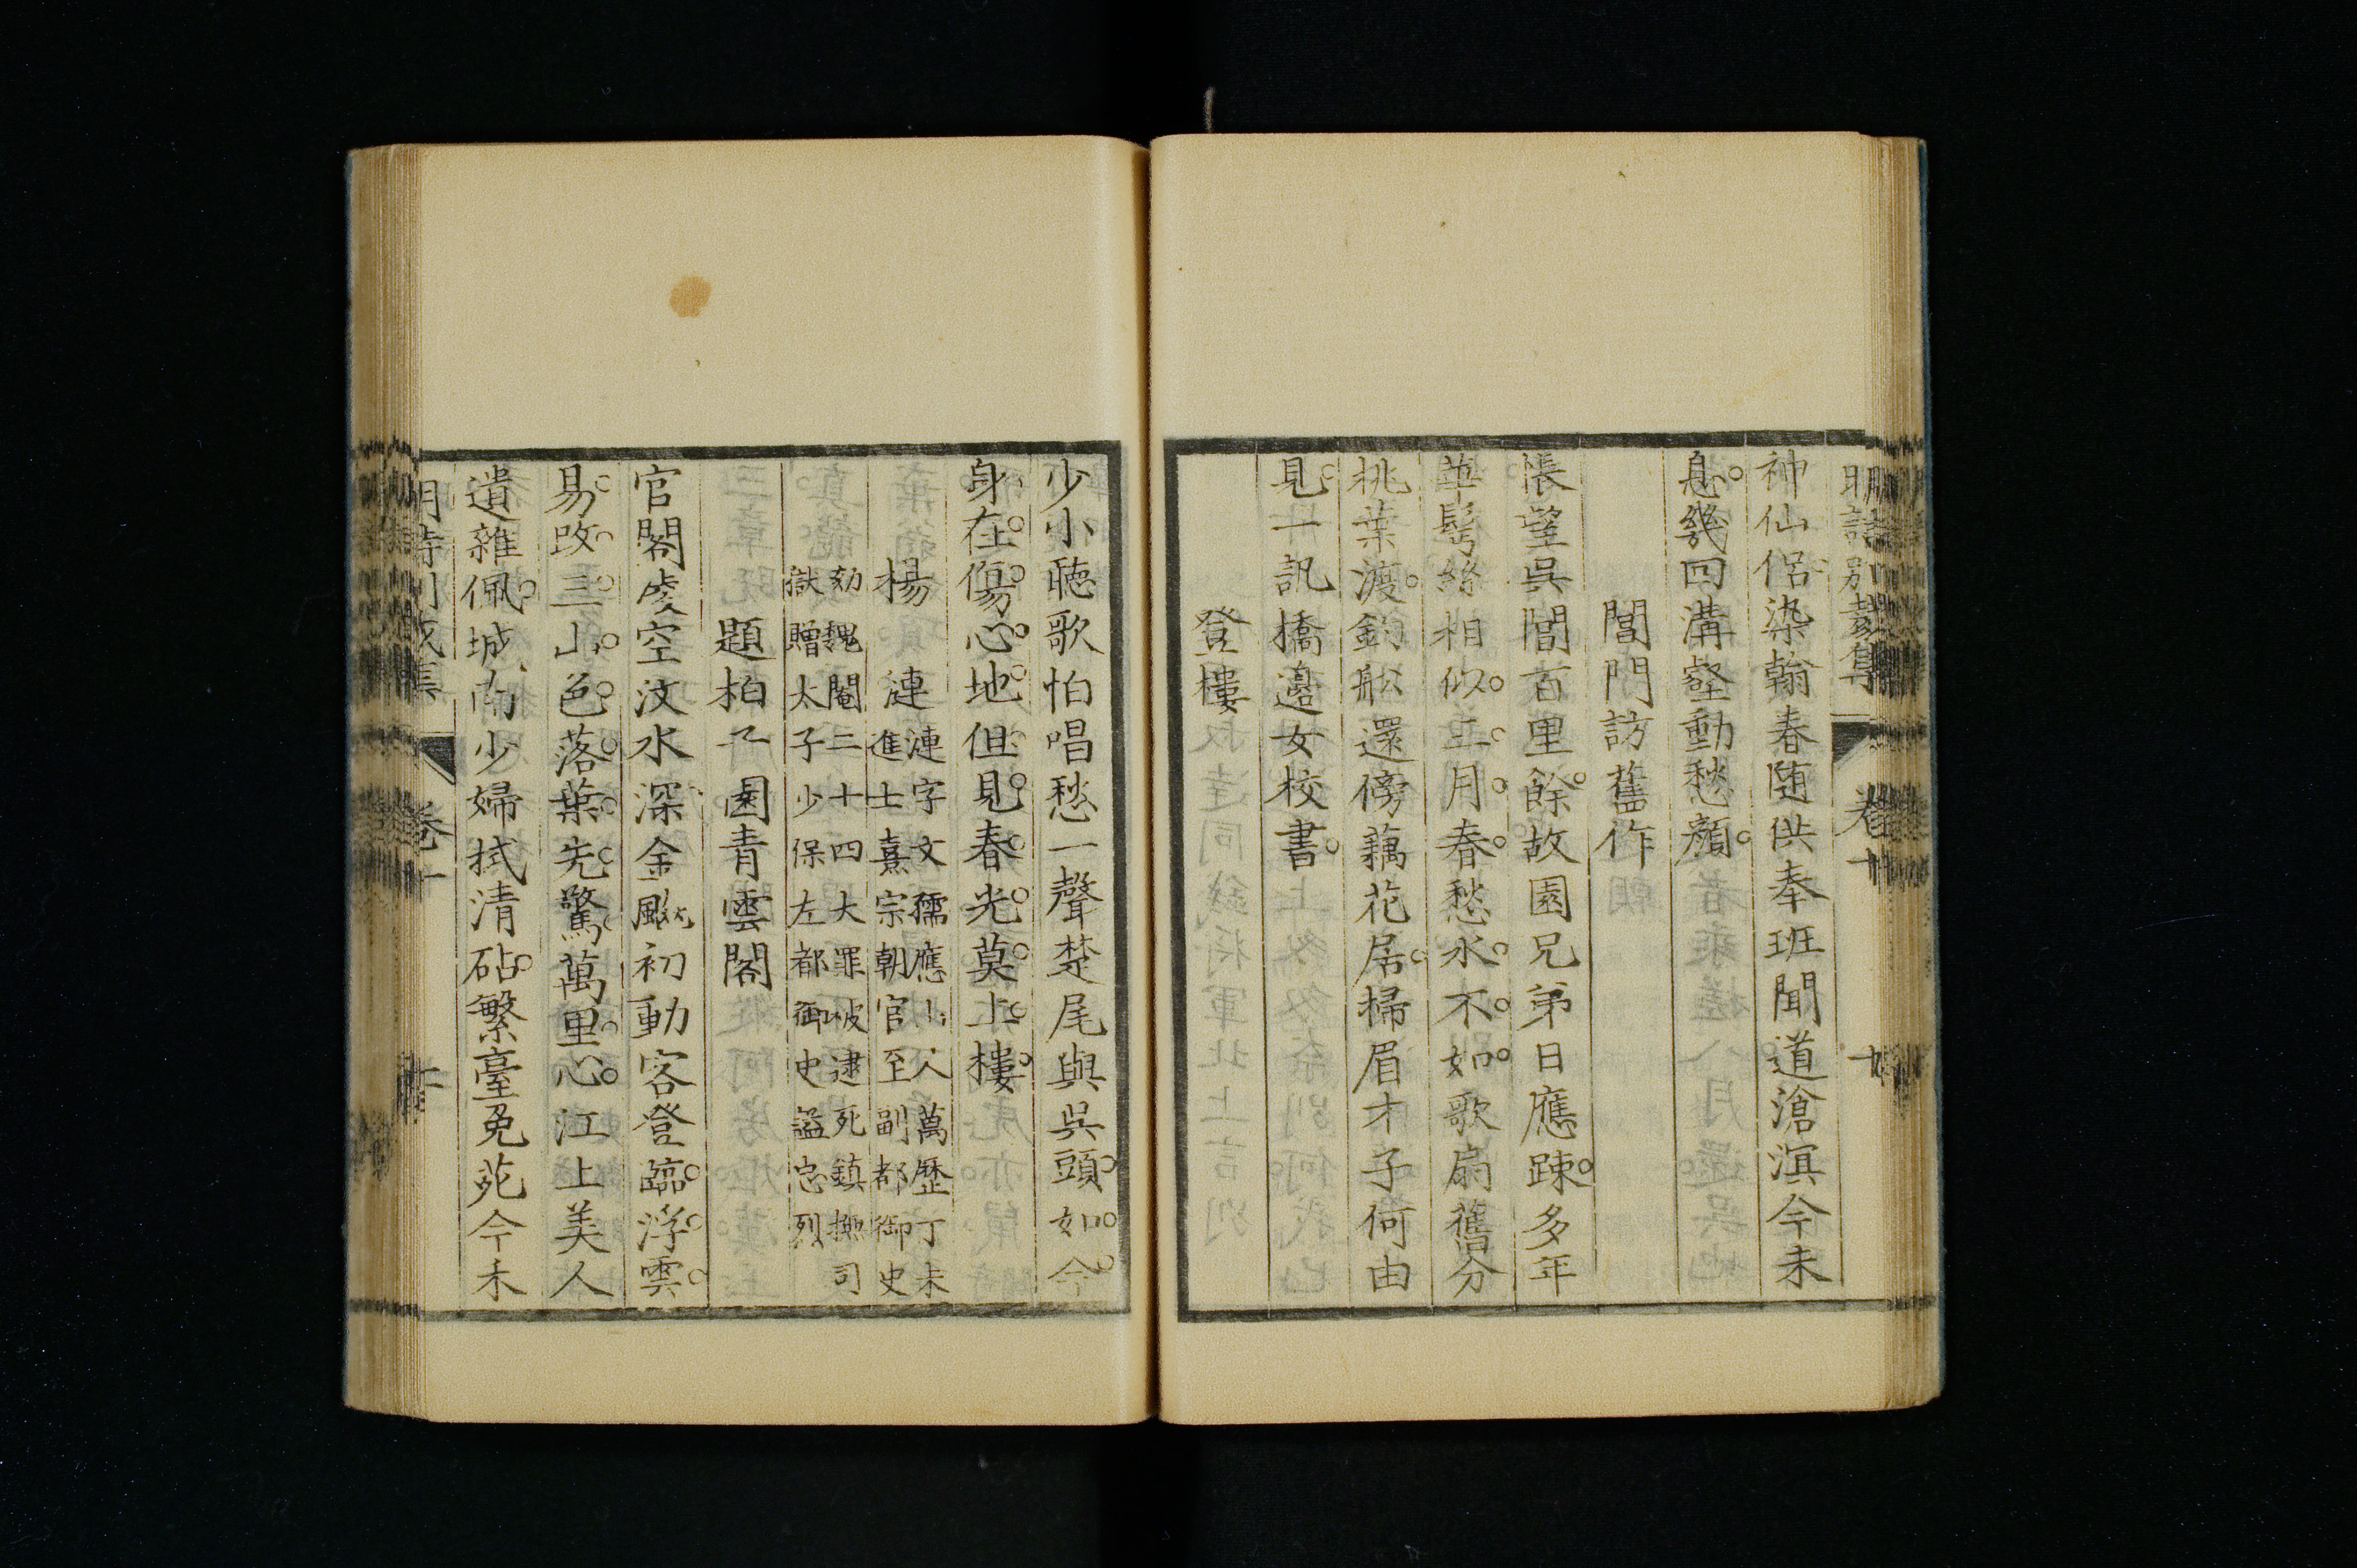 明詩別裁集 卷十
神仙侶染翰春隨供奉班聞道滄溟今未
息幾回溝壑動愁顏
閶門訪舊作
悵望吳閶百里餘故園兄弟日應踈多年
華髩絲相似二月春愁水不如歌扇舊分
桃葉渡釣船還傍藕花居掃眉才子何由
見一訊橋邊女校書
登樓
少小聽歌怕唱愁一聲楚尾與吳頭如今
身在傷心地但見春光莫上樓
楊漣
漣字文孺應山人萬歷丁未
進士熹宗朝官至副都御史
劾魏閹二十四大罪被逮死鎮撫司
獄贈太子少保左都御史諡忠烈
題柏子園青雲閣
官閣虛空汶水深金颷初動客登臨浮雲
易改三山色落葉先驚萬里心江上美人
遺雜佩城南少婦拭清砧繁臺兔苑今禾
明詩別裁集 卷十